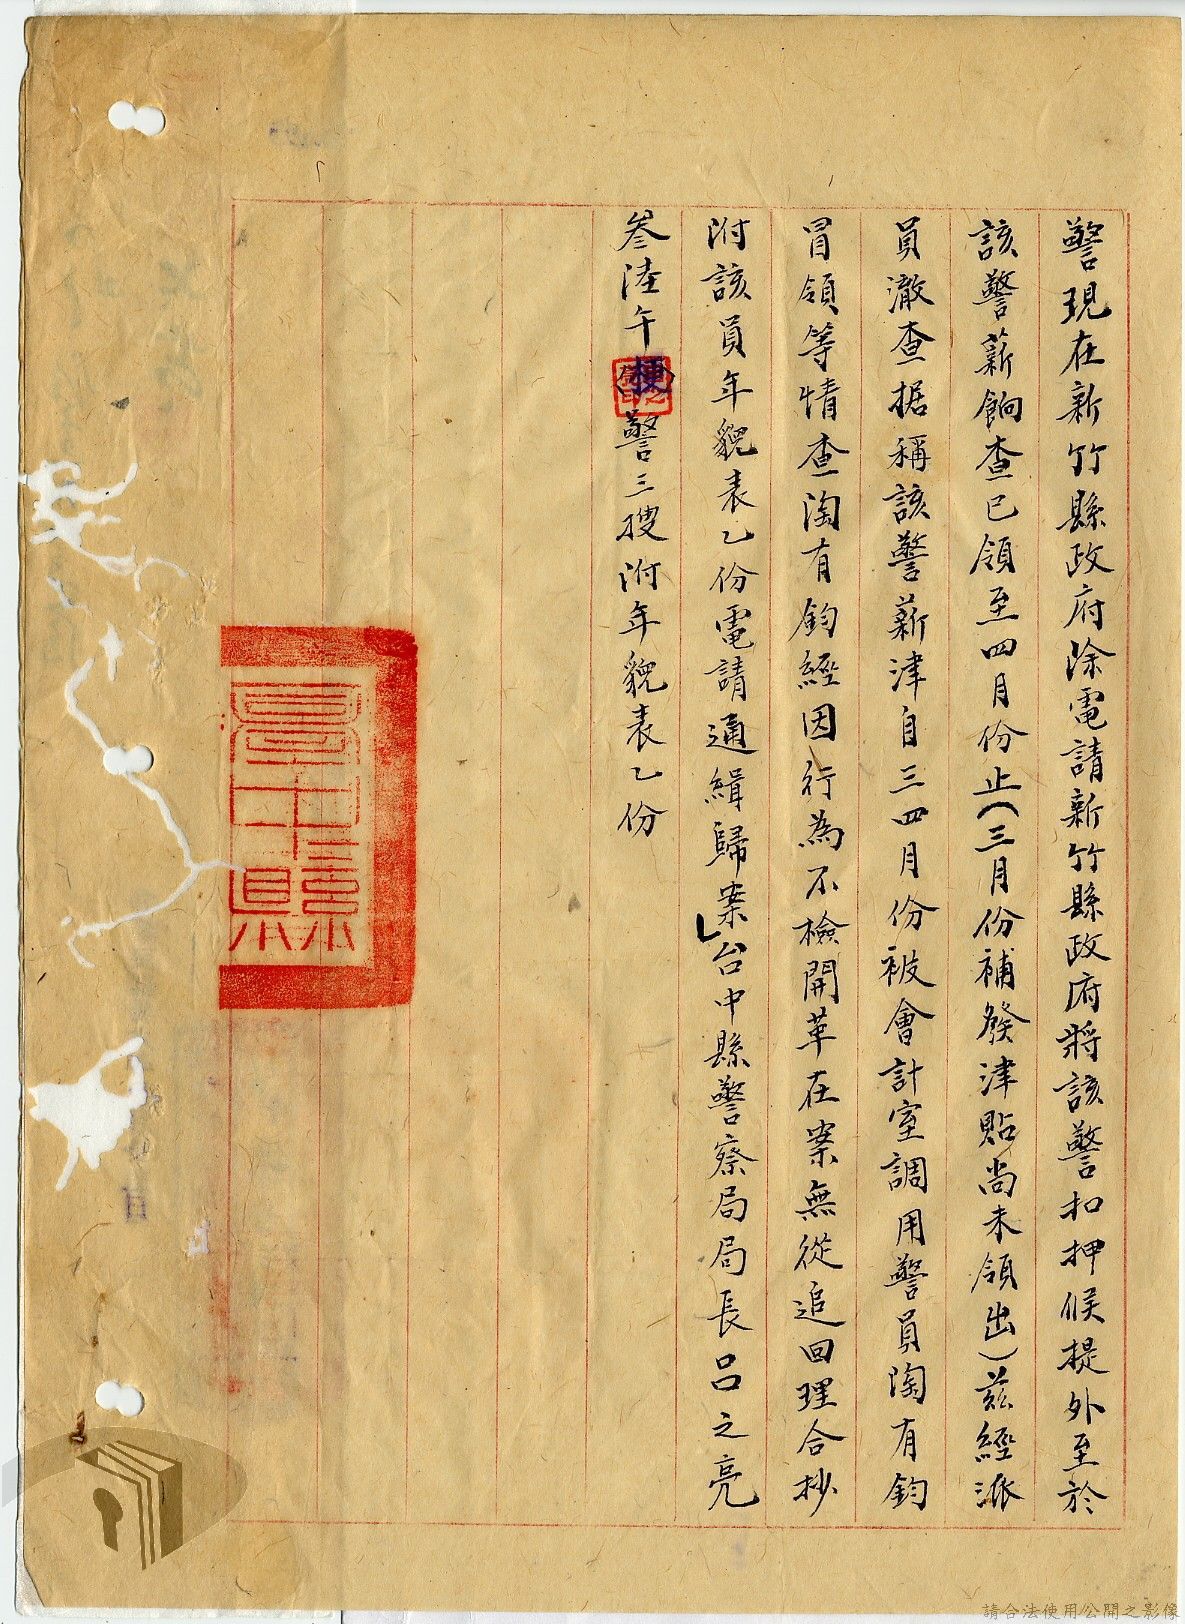 警現在新竹縣政府除電請新竹縣政府將該警扣押候提外至於
該警薪餉查已領至四月份止(三月份補發津貼尚未領出)茲經派
員澈查据稱該警薪津自三四月份被會計室調用警員陶有鈞
冒領等情查陶有鈞經因行為不檢開革在案無從追回理合抄
附該員年貌表乙份電請通緝歸案」台中縣警察局局長呂之亮
叄陸午梗警三搜附年貌表乙份
臺中縣
請合法使用公開之影像